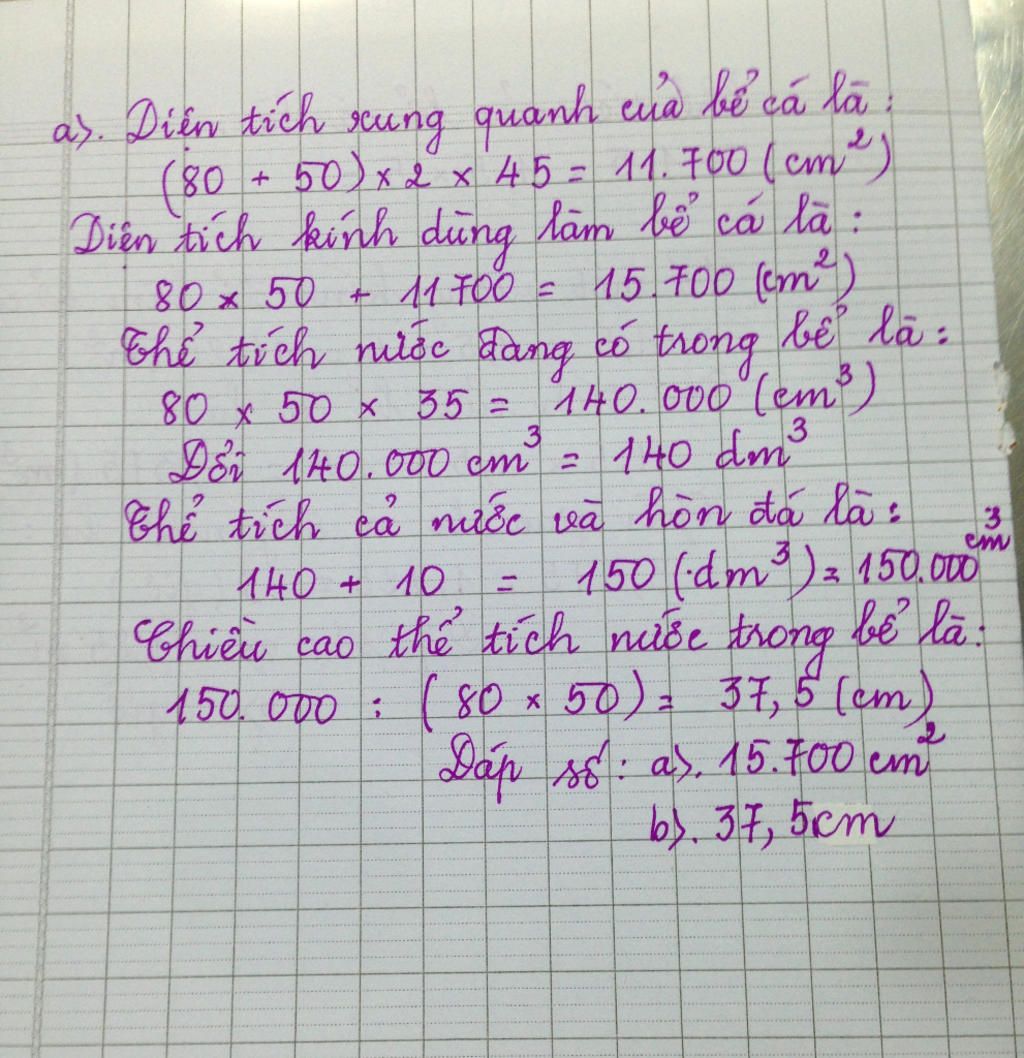 a). Diện tích xung quanh của bể cá là:
(80 + 50) x 2 x 45 = 11.700 (cm²)
Diện tích kính dùng làm bể cá là:
80 x 50 + 11700 = 15.700 (cm²)
Thể tích nước đang có trong bể là:
80 x 50 x 35 = 140.000 (cm³)
Đổi 140.000 cm³ = 140 dm³
Thể tích cả nước và hòn đá là:
140 + 10 = 150 (dm³) = 150.000 cm³
Chiều cao thể tích nước trong bể là:
150.000 : (80 x 50) = 37,5 (cm)
Đáp số: a). 15.700 cm²
b). 37,5cm